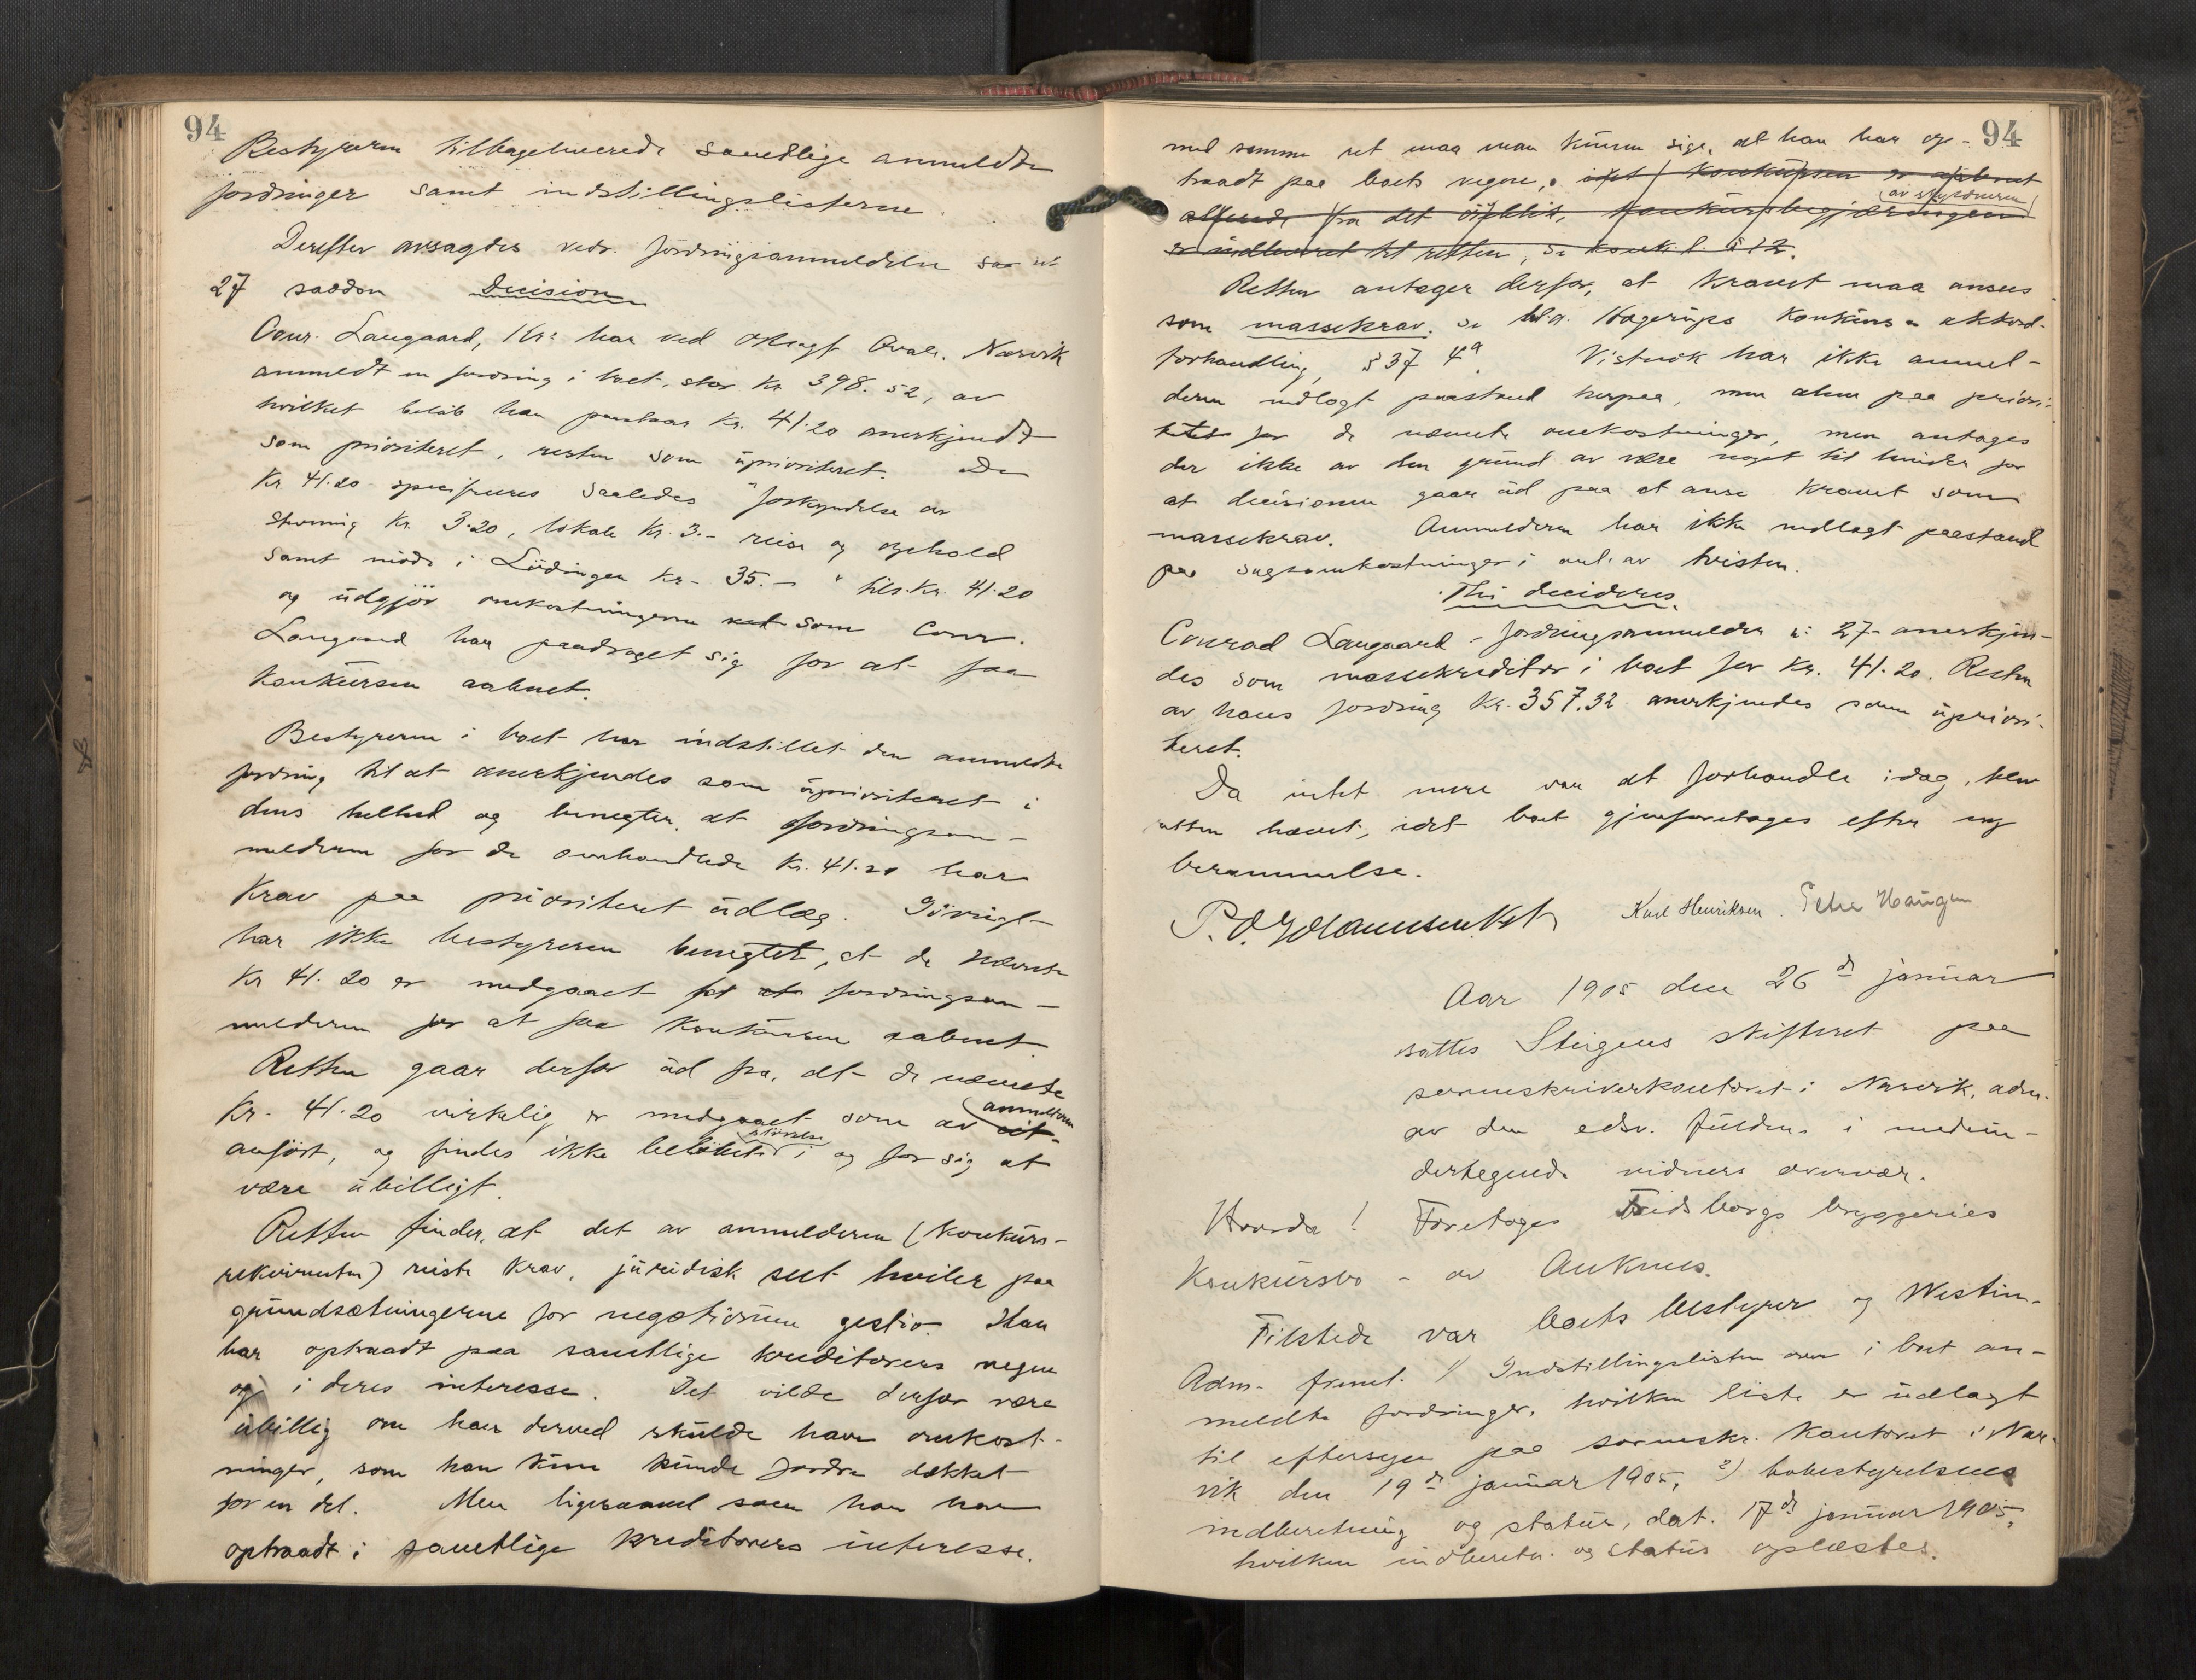 94
Bestyreren tilbageleverede samtlige anmeldte
fordringer samt indstillingslisterne.
Derefter avsagdes vedr. fordringsanmeldelse
27 saadan Decision
Conr. Langaard, Kr.a har ved Narvik
anmeldt en fordring i boet, stor Kr. 398.52, av
hvilket beløb han paastaar Kr. 41.20 anerkjendt
som prioriteret, resten som uprioriteret. De
Kr. 41.20 specificeres saaledes "forkyndelse av
stevning Kr. 3.20, lokale Kr. 3.- reise og ophold
samt møde i Lødingen Kr. 35.- " tils. Kr. 41.20
og udgjør omkostningerne som Conr.
Langaard har paadraget sig for at faa
konkursen aabnet.
Bestyreren i boet har indstillet den anmeldte
fordring til at anerkjendes som uprioriteret i
dens helhed og benegter, at fordringsan-
melderen for de omhandlede Kr. 41.20 har
krav paa prioriteret udlæg. Iøvrigt
har ikke bestyreren benegtet, at de nævnte
Kr. 41.20 er medgaaet for fordringsan-
melderen for at faa konkursen aabnet.
Retten gaar derfor ud fra, at de nævnte
Kr. 41.20 virkelig er medgaaet som av anmelderen
anført, og findes ikke beløbets størrelse i og for sig at
være ubilligt.
Retten finder, at det av anmelderen (konkurs-
rekvirenten) reiste krav, juridisk seet hviler paa
grundsætningerne for negotiorum gestio. Han
har optraadt paa samtlige kreditorers vegne
og i deres interesse. Det vilde derfor være
ubillig om han derved skulde have omkost-
ninger, som han kun kunde fordre dækket
for en del. Men ligesaavel som han har
optraadt i samtlige kreditorers interesse,
94
med samme ret maa man kunne sige, at han har op-
traadt paa boets vegne, idet konkursen er aabnet
av skyldneren
allerede fra det øieblik, konkursbegjæringen
er indleveret til retten, se konk. l. § 12.
Retten antager derfor, at kravet maa ansees
som massekrav. se bl.a. Hagerups Konkurs & akkord-
forhandling, § 37 4a. Vistnok har ikke anmel-
deren nedlagt paastand herpaa, men alene paa priori-
tet for de nævnte omkostninger, men antages
der ikke av den grund at være noget til hinder for
at decisionen gaar ud paa at anse kravet som
massekrav. Anmelderen har ikke nedlagt paastand
paa sagsomkostninger i anl. av tvisten.
Thi decideres
Conrad Langaard - fordringsanmelder n: 27 - anerkjen-
des som massekreditor i boet for Kr. 41.20. Resten
av hans fordring Kr. 357.32 anerkjendes som upriori-
teret.
Da intet mere var at forhandle idag, blev
retten hævet, idet boet gjenforetages efter ny
berammelse.
Karl Henriksen. Peter Haugen
Aar 1905 den 26de januar
sattes Steigens skifteret paa
sorenskriverkontoret i Narvik, adm.
av den edsv. fuldm. i medun-
dertegnede vidners overvær.
Hvorda! Foretoges Fridsborgs bryggeries
Konkursbo - av Ankenes.
Tilstede var boets bestyrer og Westin.
Adm. freml. 1) Indstillingslisten over i boet an-
meldte fordringer, hvilken liste er udlagt
til eftersyn paa sorenskr. kontoret i Nar-
vik den 19de januar 1905, 2) bobestyrelsens
indberetning og status, dat. 17de januar 1905,
hvilken indberetn. og status oplæstes.